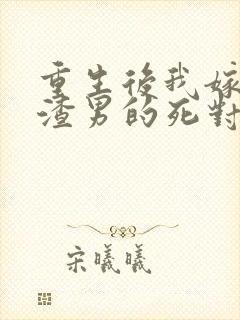 重生後我嫁
渣男的死對
宋曦曦